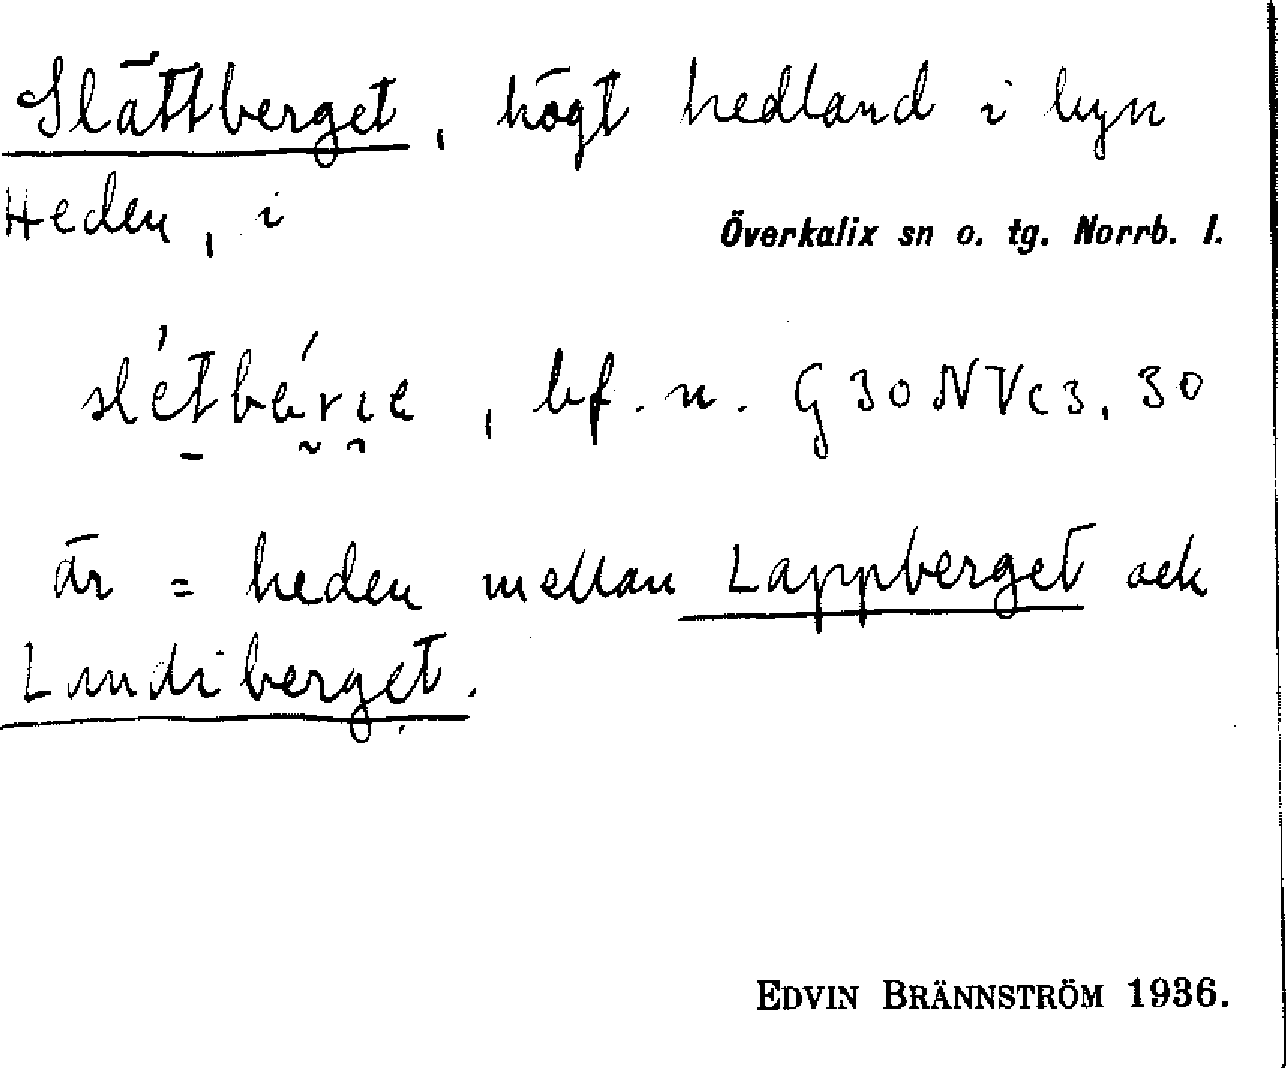 Slättberget, högt hedland i byn
Heden, i
Överkalix sn o. tg. Norrb. l.
bf. n. G30NVc3, 30
är = heden mellan Lappberget och
Lundiberget.
EDVIN BRÄNNSTRÖM 1936.